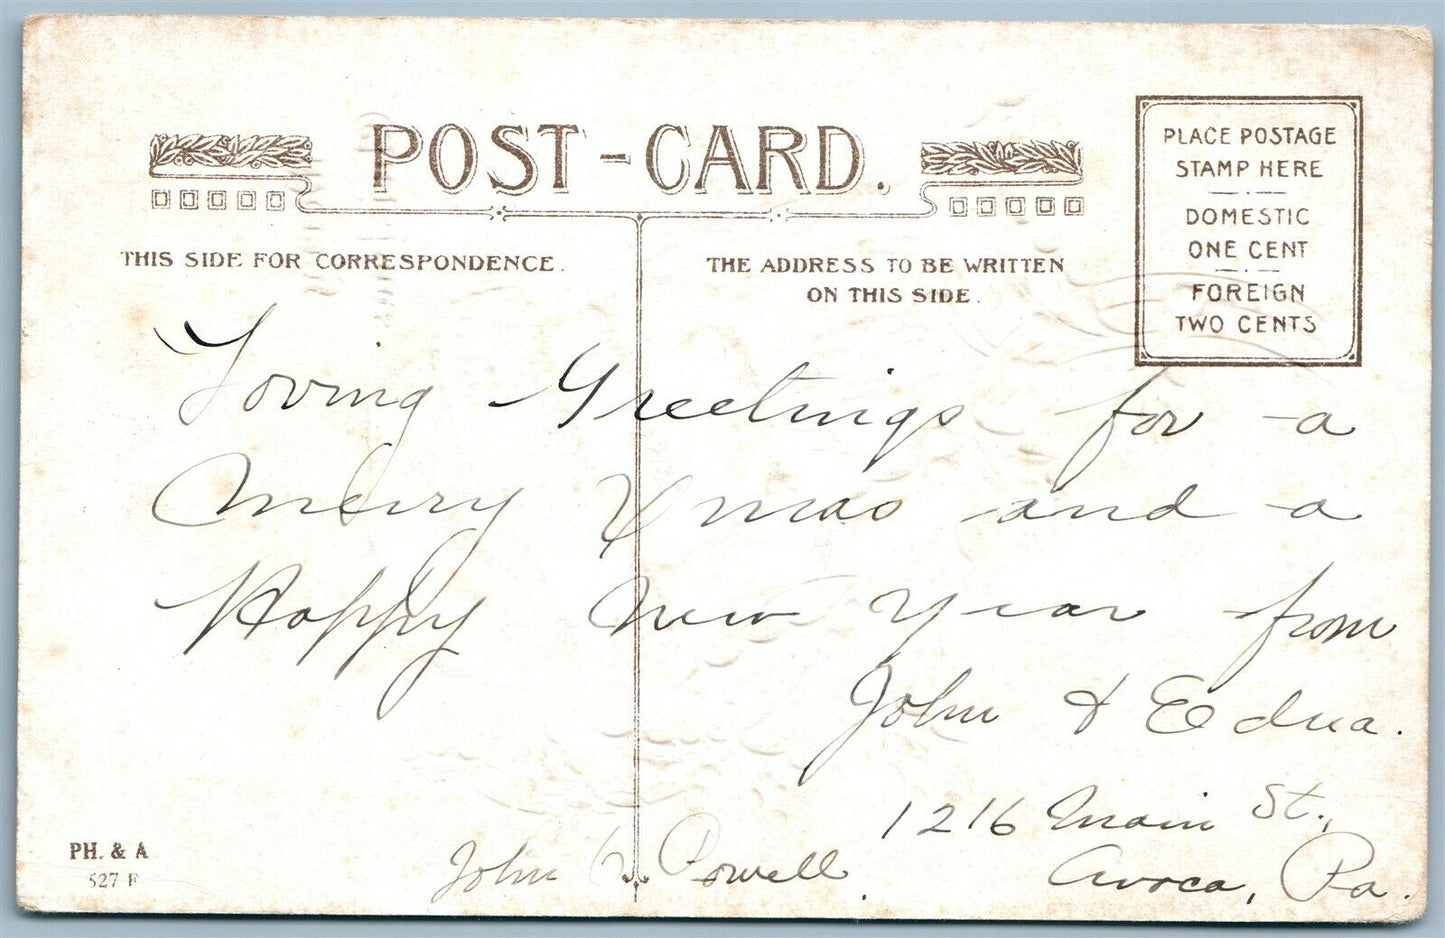 POST-CARD.
PLACE POSTAGE
STAMP HERE
DOMESTIC
ONE CENT
FOREIGN
TWO CENTS
THIS SIDE FOR CORRESPONDENCE.
THE ADDRESS TO BE WRITTEN
ON THIS SIDE.
Loving Greetings for a
Merry Xmas and a
Happy New Year from
John & Edna.
1216 Main St.,
Avoca, Pa.
John Powell.
PH. & A
527 F